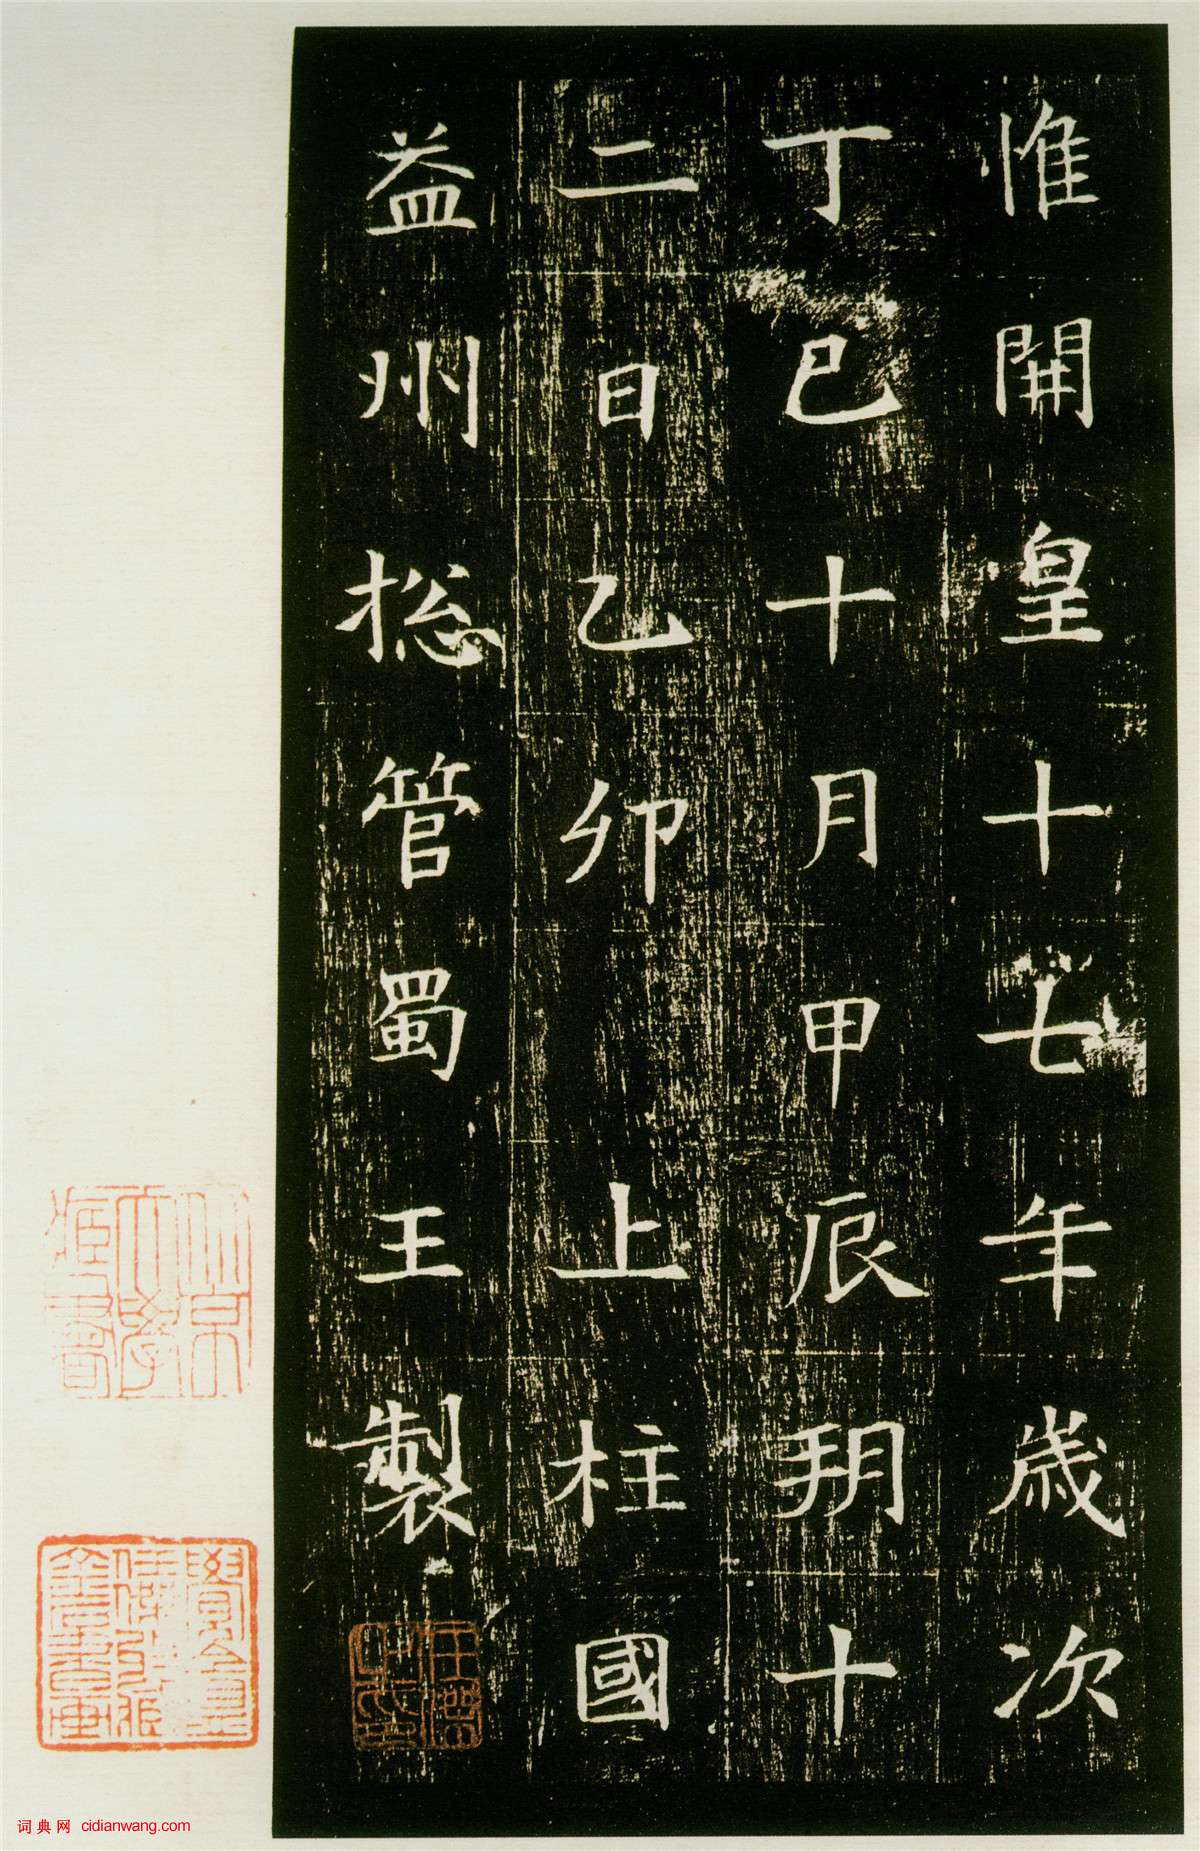 惟開皇十七年歲次
丁巳十月甲辰朔十
二日乙卯上柱國
益州揔管蜀王製
词典网 cidianwang.com